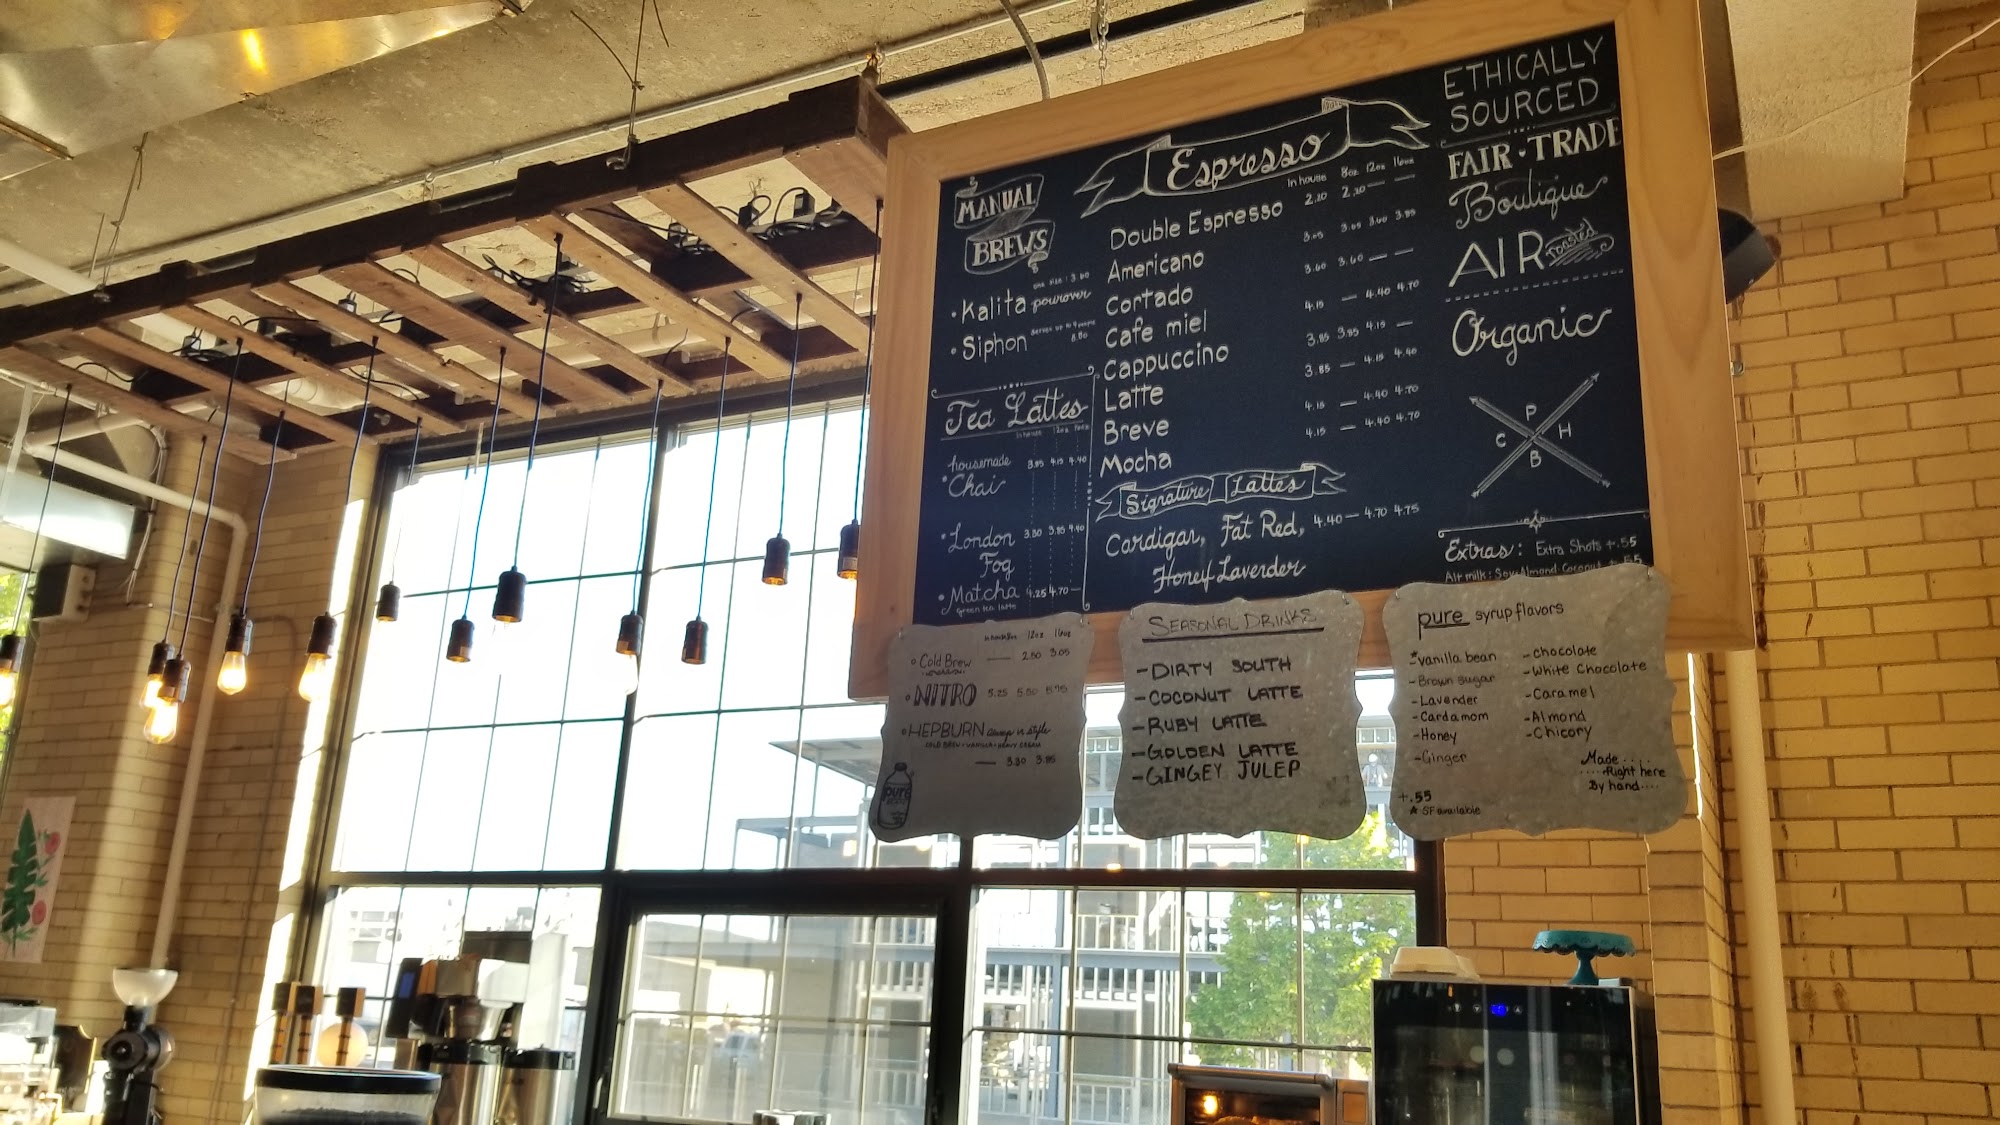 MANUAL
BREWS
one size: 3.60
• Kalita pourover
• Siphon
8.80
Tea Lattes
in house 12oz 16oz
housemade 3.85 4.15 4.40
• Chai
• London 3.30 3.85 4.40
Fog
• Matcha 4.25 4.70 —
Green tea latte
Espresso
In house 8oz 12oz 16oz
Double Espresso 2.20 2.20 — —
Americano 3.05 3.05 3.60 3.85
Cortado 3.60 3.60 — —
Cafe miel 4.15 — 4.40 4.70
Cappuccino 3.85 3.85 4.15 —
Latte 3.85 — 4.15 4.40
Breve 4.15 — 4.40 4.70
Mocha 4.15 — 4.40 4.70
Signature Lattes
Cardigan, Fat Red, 4.40 — 4.70 4.75
Honey Lavender
ETHICALLY
SOURCED
FAIR • TRADE
Boutique
AIR Roasted
Organic
P
C H
B
Extras: Extra Shots +.55
Alt milk: Soy Almond Coconut +.55
in house 12oz 16oz
• Cold Brew — 2.50 3.05
• NITRO 5.25 5.50 5.75
• HEPBURN always in style
COLD BREW • VANILLA • HEAVY CREAM
— 3.30 3.85
pure
SEASONAL DRINKS
- DIRTY SOUTH
- COCONUT LATTE
- RUBY LATTE
- GOLDEN LATTE
- GINGEY JULEP
pure syrup flavors
* vanilla bean
- Brown sugar
- Lavender
- Cardamom
- Honey
- Ginger
- Chocolate
- White Chocolate
- Caramel
- Almond
- Chicory
Made ....
.... Right here
By hand....
+.55
* SF available